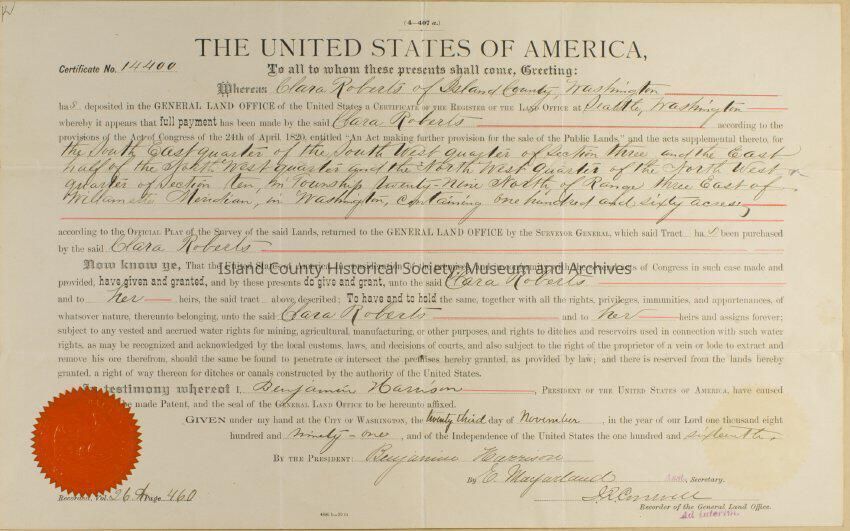 (4—407 a.)
THE UNITED STATES OF AMERICA,
Certificate No. 14400
To all to whom these presents shall come, Greeting:
Whereas Clara Roberts of Island County, Washington
has deposited in the GENERAL LAND OFFICE of the United States a CERTIFICATE OF THE REGISTER OF THE LAND OFFICE AT Seattle, Washington
whereby it appears that full payment has been made by the said Clara Roberts according to the
provisions of the Act of Congress of the 24th of April, 1820, entitled "An Act making further provision for the sale of the Public Lands," and the acts supplemental thereto, for
the South East quarter of the South West quarter of Section three and the East
half of the North West quarter and the North West quarter of the North West
quarter of Section ten, in Township twenty-nine North, of Range three East of
Willamette Meridian, in Washington, containing one hundred and sixty acres,
according to the OFFICIAL PLAT of the Survey of the said Lands, returned to the GENERAL LAND OFFICE by the SURVEYOR GENERAL, which said Tract has been purchased
by the said Clara Roberts
Now know ye, That the United States of America, in consideration of the premises, and in conformity with the several Acts of Congress in such case made and
Island County Historical Society: Museum and Archives
provided, have given and granted, and by these presents do give and grant, unto the said Clara Roberts
and to her heirs, the said tract above described; To have and to hold the same, together with all the rights, privileges, immunities, and appurtenances, of
whatsoever nature, thereunto belonging, unto the said Clara Roberts and to her heirs and assigns forever;
subject to any vested and accrued water rights for mining, agricultural, manufacturing, or other purposes, and rights to ditches and reservoirs used in connection with such water
rights, as may be recognized and acknowledged by the local customs, laws, and decisions of courts, and also subject to the right of the proprietor of a vein or lode to extract and
remove his ore therefrom, should the same be found to penetrate or intersect the premises hereby granted, as provided by law; and there is reserved from the lands hereby
granted, a right of way thereon for ditches or canals constructed by the authority of the United States.
In testimony whereof I, Benjamin Harrison, PRESIDENT OF THE UNITED STATES OF AMERICA, have caused
be made Patent, and the seal of the GENERAL LAND OFFICE to be hereunto affixed.
GIVEN under my hand at the CITY OF WASHINGTON, the twenty third day of November, in the year of our Lord one thousand eight
hundred and ninety-one, and of the Independence of the United States the one hundred and sixteenth.
BY THE PRESIDENT: Benjamin Harrison
By E. Macfarland Asst. Secretary.
Recorder of the General Land Office.
ad interim
Recorded, Vol. 26 Page 460